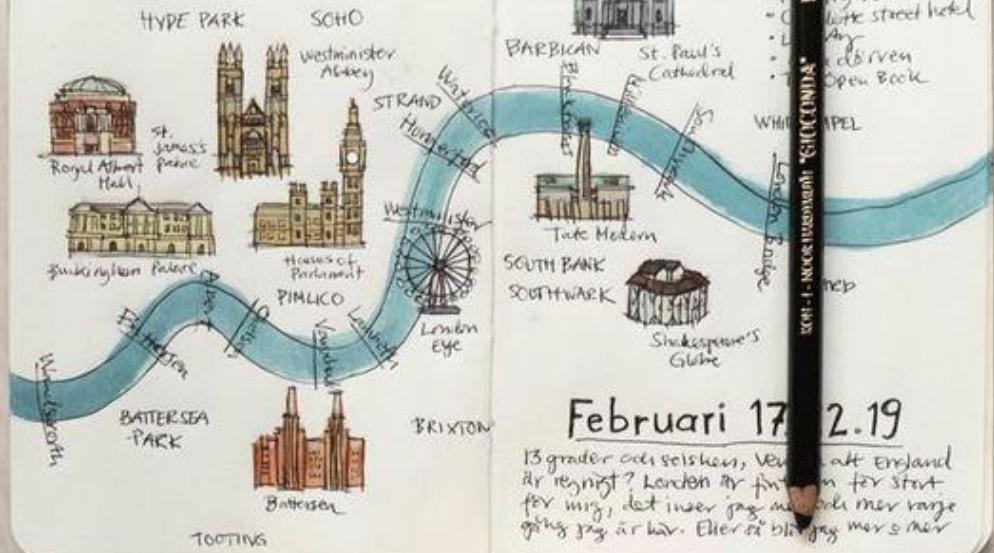 HYDE PARK
SOHO
Westminister
Abbey
Royal Albert
Hall
St.
James's
Palace
Buckingham Palace
Houses of
Parliament
STRAND
Waterloo
Hungerford
Westminister
London
Eye
PIMLICO
Albert
Chelsea
Vauxhall
Lambeth
Battersea
Wandsworth
BATTERSEA
PARK
Battersea
BRIXTON
TOOTING
BARBICAN
St. Paul's
Cathedral
street hotel
Open Book
Blackfriars
Millennium
Southwark
London Bridge
Tate Modern
SOUTH BANK
SOUTHWARK
Shakespeare's
Globe
KOH-I-NOOR HARDTMUTH "GIOCONDA"
Februari 17 2.19
13 grader och solsken, att England
är regnigt? London är för stort
för mig, det inser jag och mer varje
gång jag är här. Eller så blir jag mer & mer